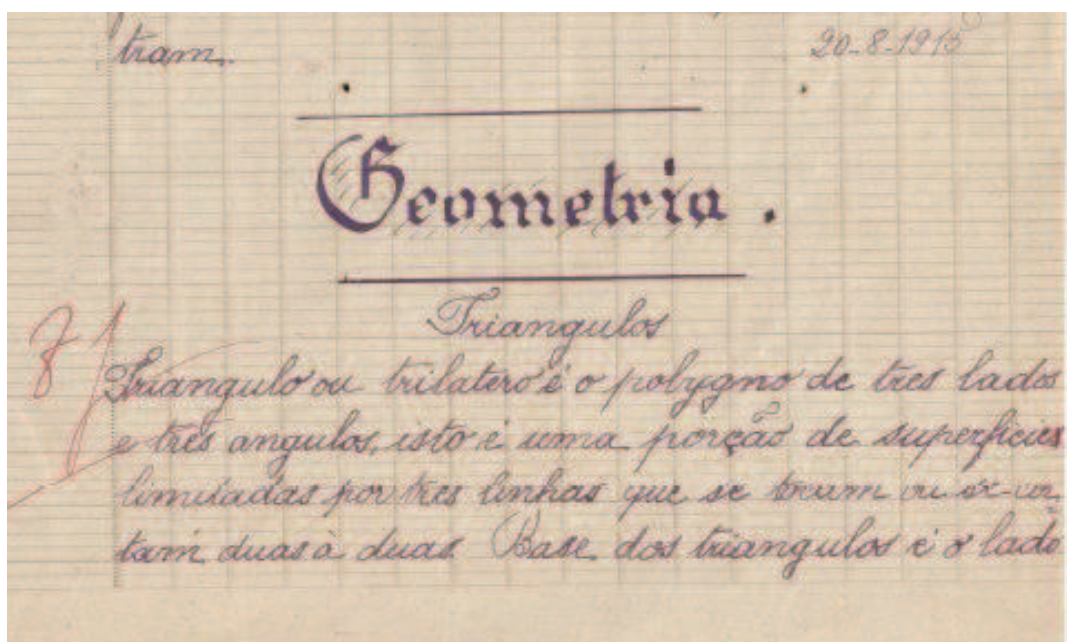 tram.
20-8-1915
Geometria.
Triangulos
8
Triangulo ou trilatero é o polygno de tres lados
e tres angulos, isto é uma porção de superficies
limitadas por tres linhas que se tocam ou
tam duas à duas. Base dos triangulos é o lado